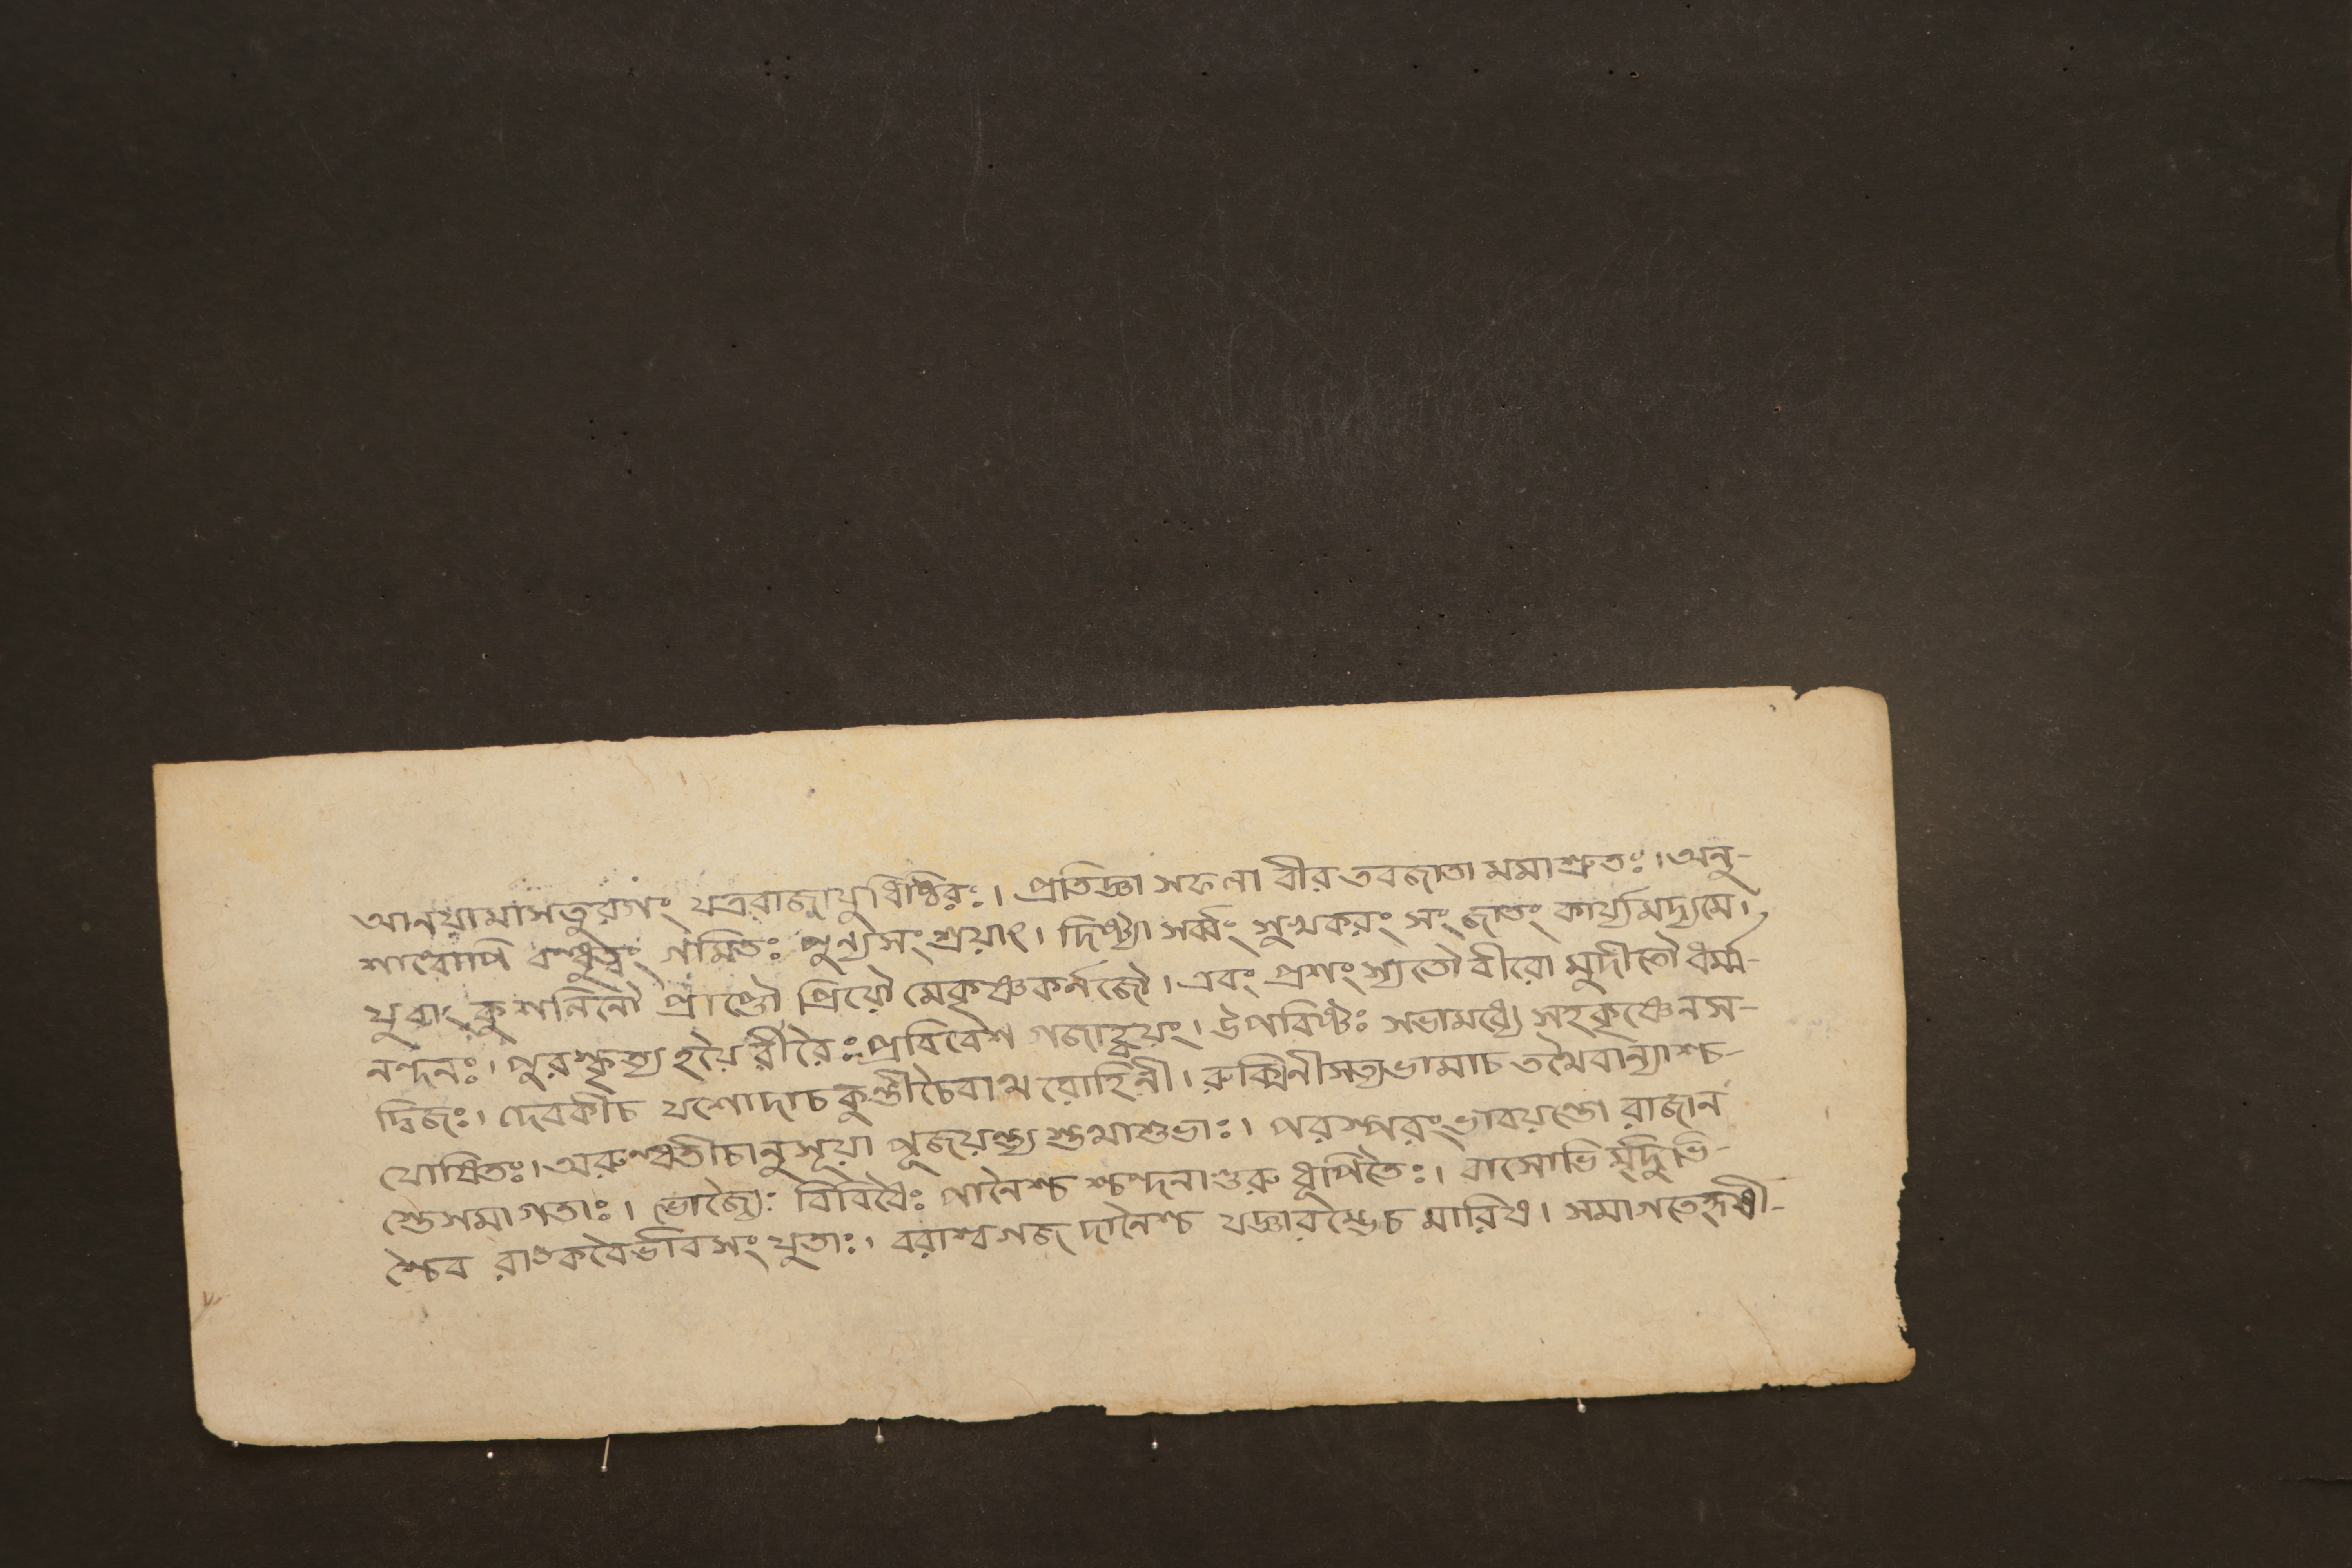 আনয়ামাসতুরগং যত্ররাজাযুধিষ্ঠিরঃ। প্রতিজ্ঞা সফলা বীর তবজাতা মমাশ্রুতঃ। অনু-
শাল্বোপি বন্ধুত্বং গমিতঃ পুন্যসংশ্রয়াৎ। দিষ্ট্যা সর্ব্বং সুখকরং সংজাতং কার্য্যমদ্যমে।
যুবাং কুশলিনৌ প্রাপ্তৌ প্রিয়ৌ মেকৃষ্ণকর্নজৌ। এবং প্রশংস্যতৌ বীরো মুদীতৌ ধর্ম্ম-
নন্দনঃ। পুরস্কৃত্য হয়ৈ র্বীরৈঃ প্রবিবেশ গজাহ্বয়ং। উপবিষ্টঃ সভামধ্যে সহকৃষ্ণেনস-
দ্বিজঃ। দেবকীচ যশোদাচ কুন্তীচৈবাথ রোহিনী। রুক্মিনীসত্যভামাচ তথৈবান্যাশ্চ-
যোষিতঃ। অরুন্ধতীচানুসূয়া পূজয়ন্ত্য স্তথাশুভাঃ। পরস্পরং ভাবয়ন্তো রাজান
স্তেসমাগতাঃ। ভোজ্যৈঃ বিবিধৈঃ পানৈশ্চ শ্চন্দনাগুরু ধূপিতৈঃ। বাসোভি র্মৃদুভি-
শ্চৈব রাঙ্কবৈর্ভাবসংযুতাঃ। বরাশ্বগজ দানৈশ্চ যজ্ঞারম্ভেচ মারিষ। সমাগতেহৃষী-